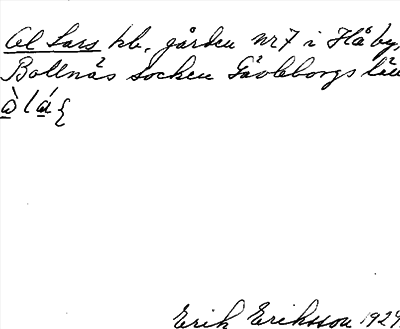 Ol Lars hb. gården nr 7 i Håby,
Bollnäs socken Gävleborgs län
Erik Eriksson 1929